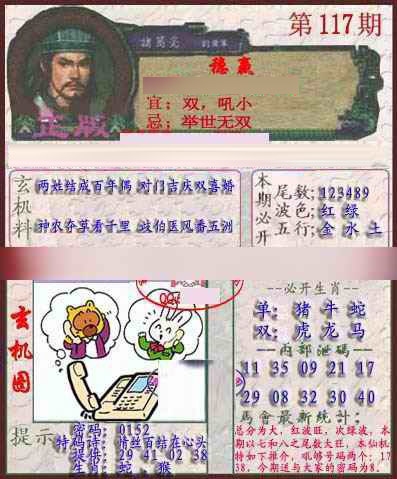 第117期
諸葛亮
稳赢
宜；双，吼小
忌；举世无双
正版
玄机料
两姓结成百年偶 对门吉庆双喜婚
神农夸草看千里 歧伯医风番五洲
本期必开
尾数;123489
波色;红 绿
五行;金 水 土
QQ:
玄机图
一必开生肖一
单: 猪 牛 蛇
双: 虎 龙 马
--内部泄码--
11 35 09 21 17
29 08 32 30 40
马會最新统计:
总分为大，红波旺，次绿波，本
期以七和八之尾数大旺，本仙机
特如下推介，吼够号码两个：17
38，今期送与大家的密码为8.
提示
密码: 0152
特码诗: 情丝百结在心头
提偣: 29 41 02 38
生肖: 蛇、猴